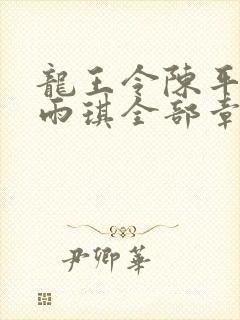 龍王令陳平
雨琪全部章
尹卿華